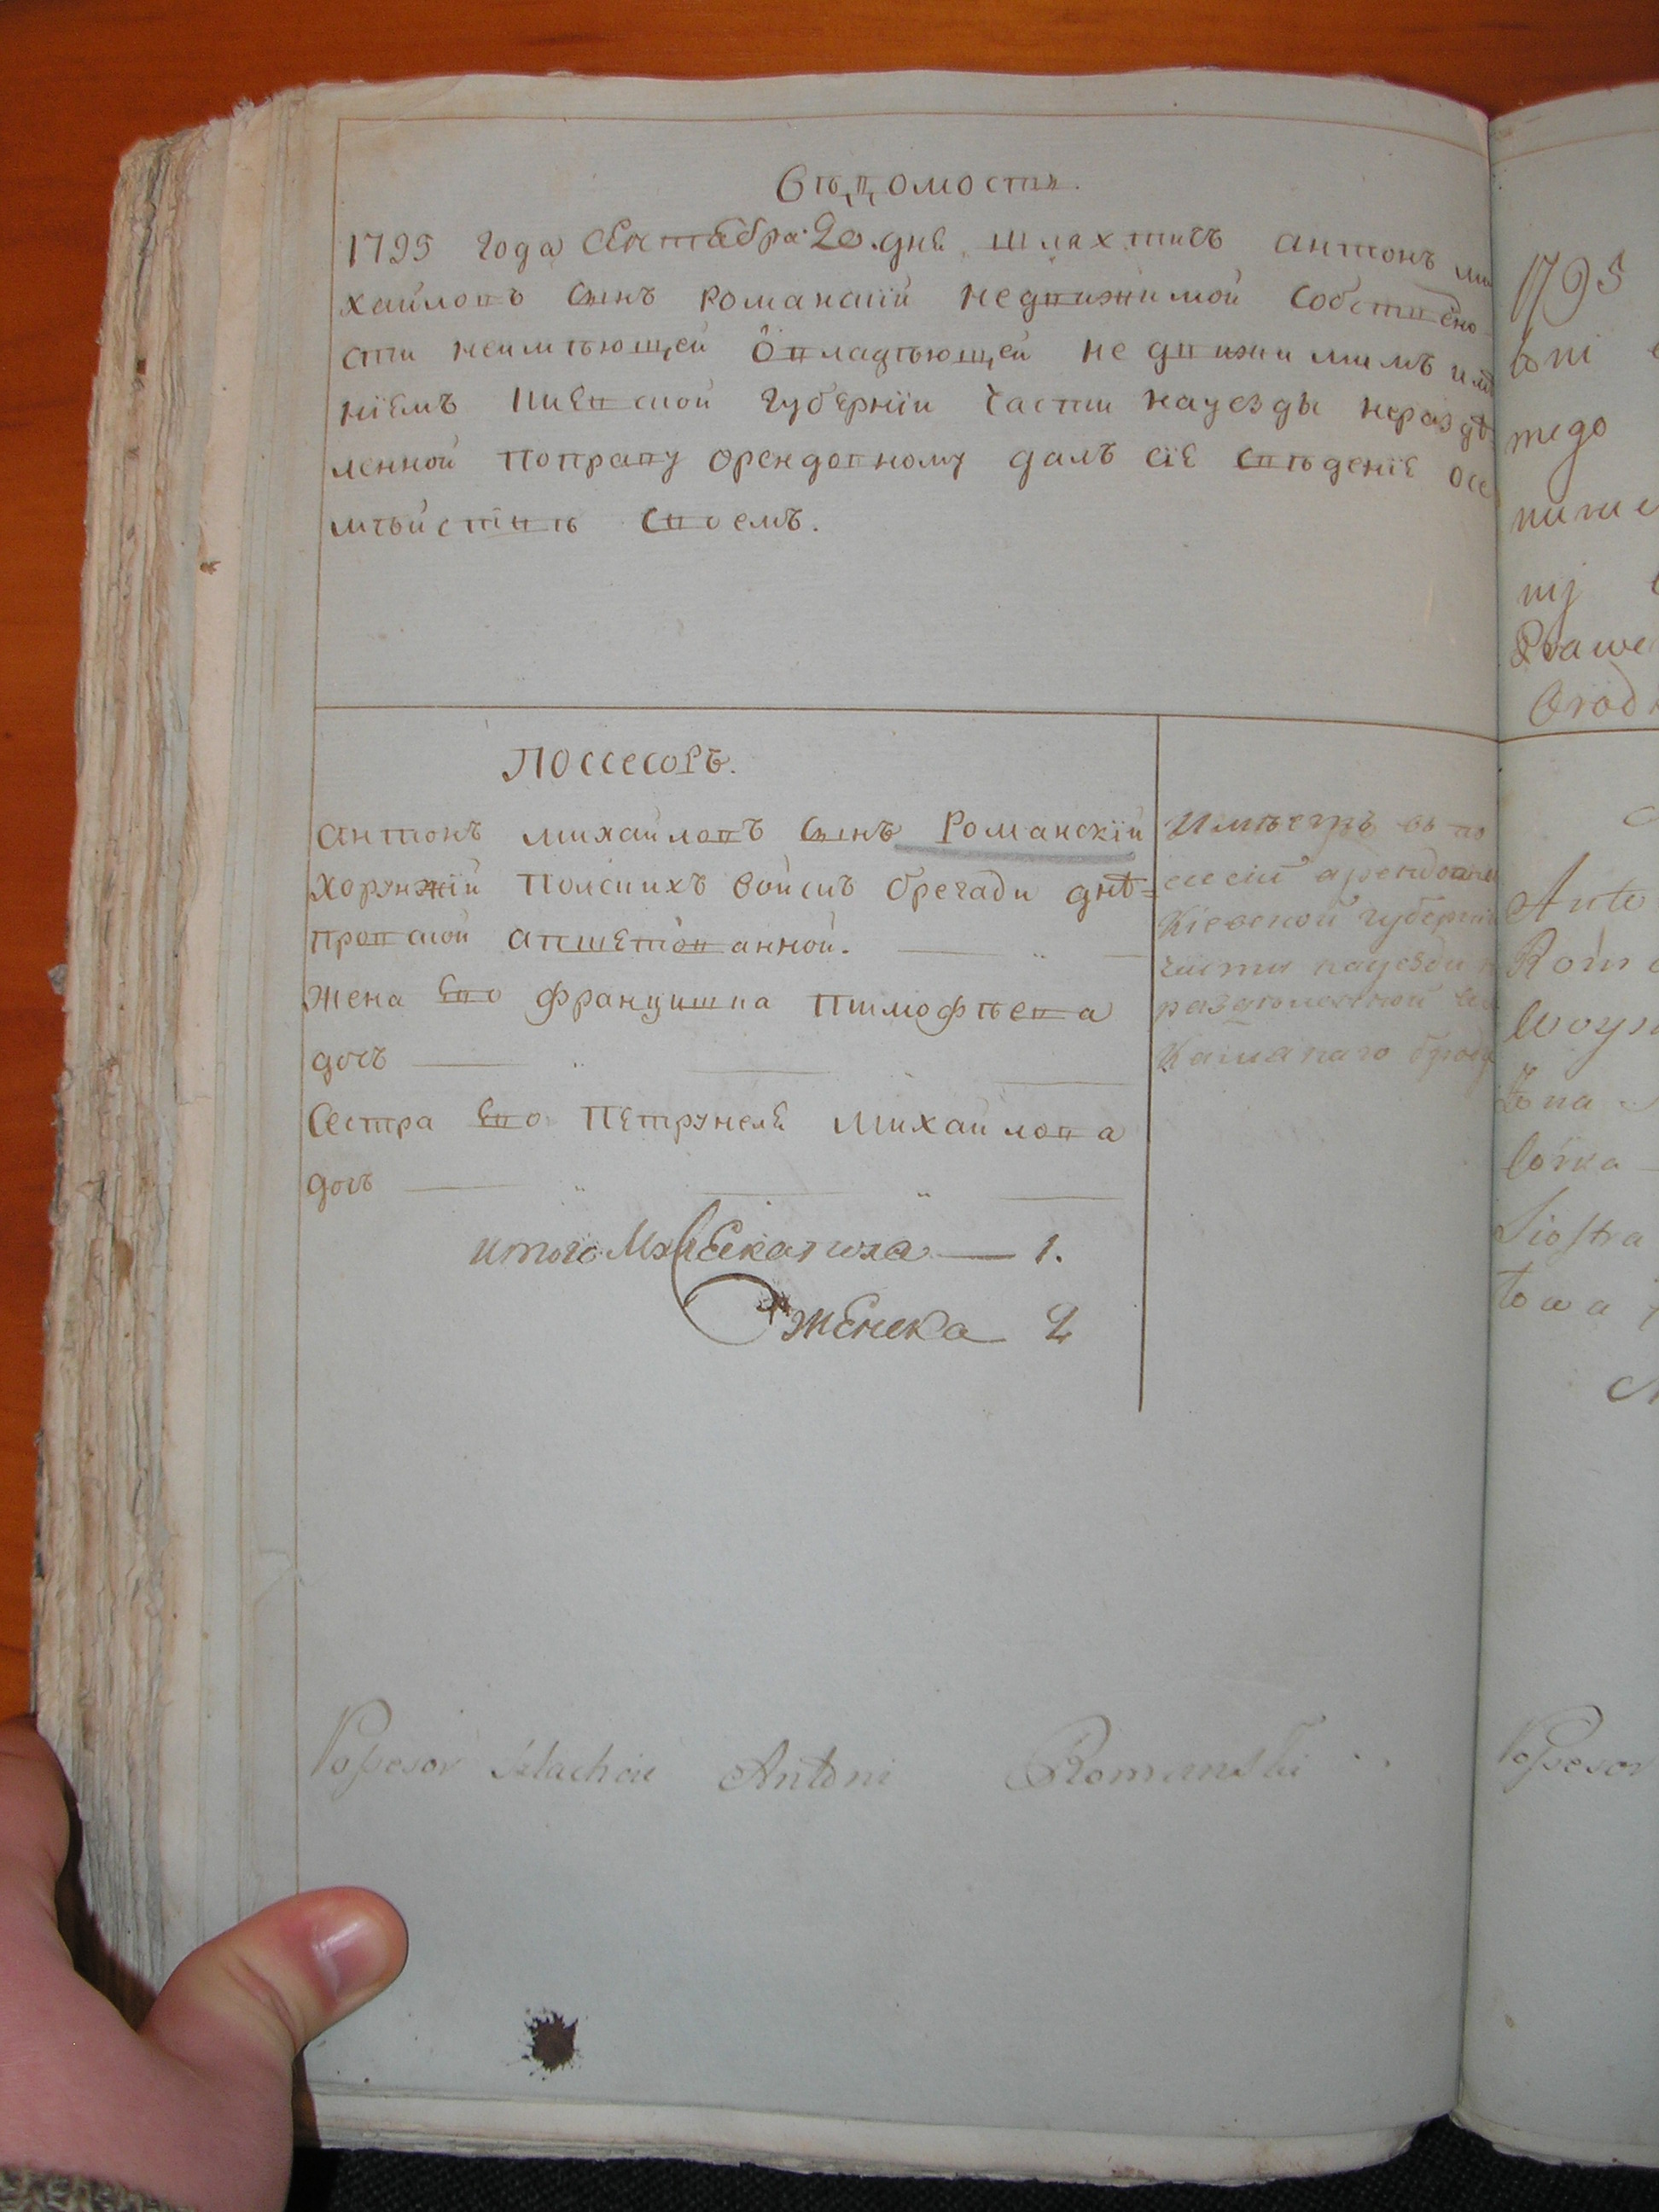 Вѣдомость.
1795 года Сентября 20. днѧ шляхтичъ антонъ ми
хайловъ сынъ романскій недвижимой собствено
сти неимѣющей овладѣющей не движимимъ имѣ
ніемъ киевской губерніи части науезды неразде
ленной поправу орендовному далъ сіе сведеніе осе
мѣйствѣ своемъ.
Поссесоръ.
антонъ михайловъ сынъ Романскій
хорунжій полскихъ войскъ бречади дне=
провской апшетованной.
жена ево францишка тимофѣева
дочъ
Сестра ево Петрунеля михайлова
дочъ
итого Мужеска пола — 1.
женска 2
Имѣетъ въ по
сесіи арендовной
Кіевской губерніи
части науезди не
разделенной село
Кайтановго броду
Possesor szlachcic Antoni Romanski
1795
wni
tego
nime
nij
Prawe
Arod
Anto
Roma
woys
Żona
córka
Siostra
towa
Possesor